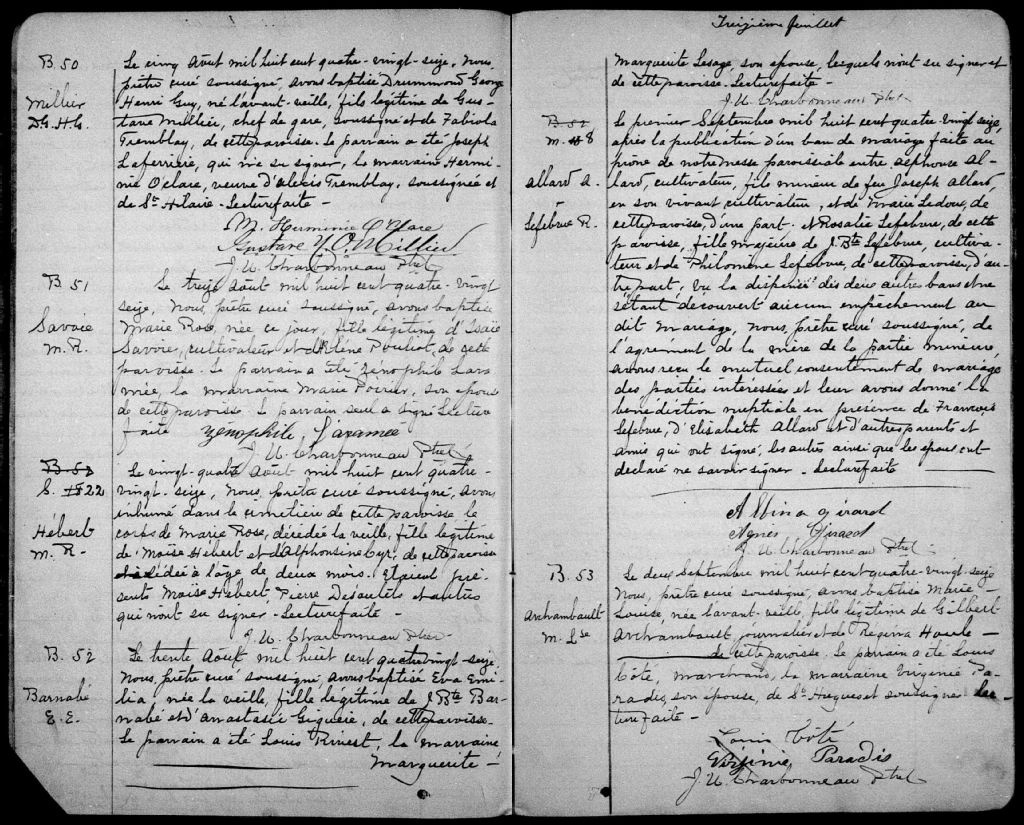 B. 50
Millier
D. G. H. G.
Le cinq Août mil huit cent quatre-vingt-seize, Nous,
prêtre curé soussigné, avons baptisé Drummond George
Henri Guy, né l'avant-veille, fils légitime de Gus-
tave Millier, chef de gare, soussigné et de Fabiola
Tremblay, de cette paroisse. Le parrain a été Joseph
Laferrière, qui n'a su signer, la marraine Hermi-
nie O'Clare, veuve d'Alexis Tremblay, soussignée et
de St Hilaire. Lecture faite -
M. Herminie O'Clare
Gustave N. O. Millier
J. U. Charbonneau Ptre
B. 51
Savoie
M. R.
Le treize Août mil huit cent quatre-vingt
seize, Nous, prêtre curé soussigné, avons baptisé
Marie Rose, née ce jour, fille légitime d'Isaie
Savoie, cultivateur et d'Arlène Pouliot, de cette
paroisse. Le parrain a été Zénophile Lara-
mée, la marraine Marie Poirier, son épouse
de cette paroisse. Le parrain seul a signé Lecture
faite
Zénophile Laramée
J. U. Charbonneau Ptre
B. 52
S. #22
Hébert
M. R.
Le vingt-quatre Août mil huit cent quatre-
vingt-seize, Nous, prêtre curé soussigné, avons
inhumé dans le cimetière de cette paroisse le
corps de Marie Rose, décédée la veille, fille légitime
de Moïse Hébert et d'Alphonsine Cyr, de cette paroisse
décédée à l'âge de deux mois. Etaient pré-
sents Moïse Hébert, Pierre Desautels et autres
qui n'ont su signer. Lecture faite -
J. U. Charbonneau Ptre
B. 52
Barnabé
E. E.
Le trente Août mil huit cent quatre vingt-seize,
Nous, prêtre curé soussigné, avons baptisé Eva Emi-
lia, née la veille, fille légitime de J. Bte Bar-
nabé et d'Anastasie Giguère, de cette paroisse.
Le parrain a été Louis Rivest, la marraine
Marguerite -
Treizième feuillet
Marguerite Lesage, son épouse, lesquels n'ont su signer et
de cette paroisse. Lecture faite -
J. U. Charbonneau Ptre
M. #8
Allard A.
&
Lefebvre R.
Le premier Septembre mil huit cent quatre-vingt seize,
après la publication d'un ban de mariage faite au
prône de notre messe paroissiale entre Alphonse Al-
lard, cultivateur, fils mineur de feu Joseph Allard,
en son vivant cultivateur, et de Marie Ledoux, de
cette paroisse, d'une part. et Rosalie Lefebvre, de cette
paroisse, fille majeure de J. Bte Lefebvre, cultiva-
teur et de Philomène Lefebvre, de cette paroisse, d'au-
tre part, vu la dispense des deux autres bans et ne
s'étant découvert aucun empêchement au
dit mariage, Nous, prêtre curé soussigné, de
l'agrément de la mère de la partie mineure,
avons reçu le mutuel consentement de mariage
des parties intéressées et leur avons donné la
bénédiction nuptiale en présence de François
Lefebvre, d'Elisabeth Allard et d'autres parents et
amis qui ont signé, les autres ainsi que les époux ont
déclaré ne savoir signer. Lecture faite
Albina Girard
Agnès Girard
J. U. Charbonneau Ptre
B. 53
Archambault
M. Lse
Le deux Septembre mil huit cent quatre-vingt-seize
Nous, prêtre curé soussigné, avons baptisé Marie
Louise, née l'avant-veille, fille légitime de Gilbert
Archambault, journalier et de Régina Houle -
de cette paroisse. Le parrain a été Louis
Côté, marchand, la marraine Virginie Pa-
radis, son épouse, de St Hugues et soussignés. Lec-
ture faite -
Louis Côté
Virginie Paradis
J. U. Charbonneau Ptre